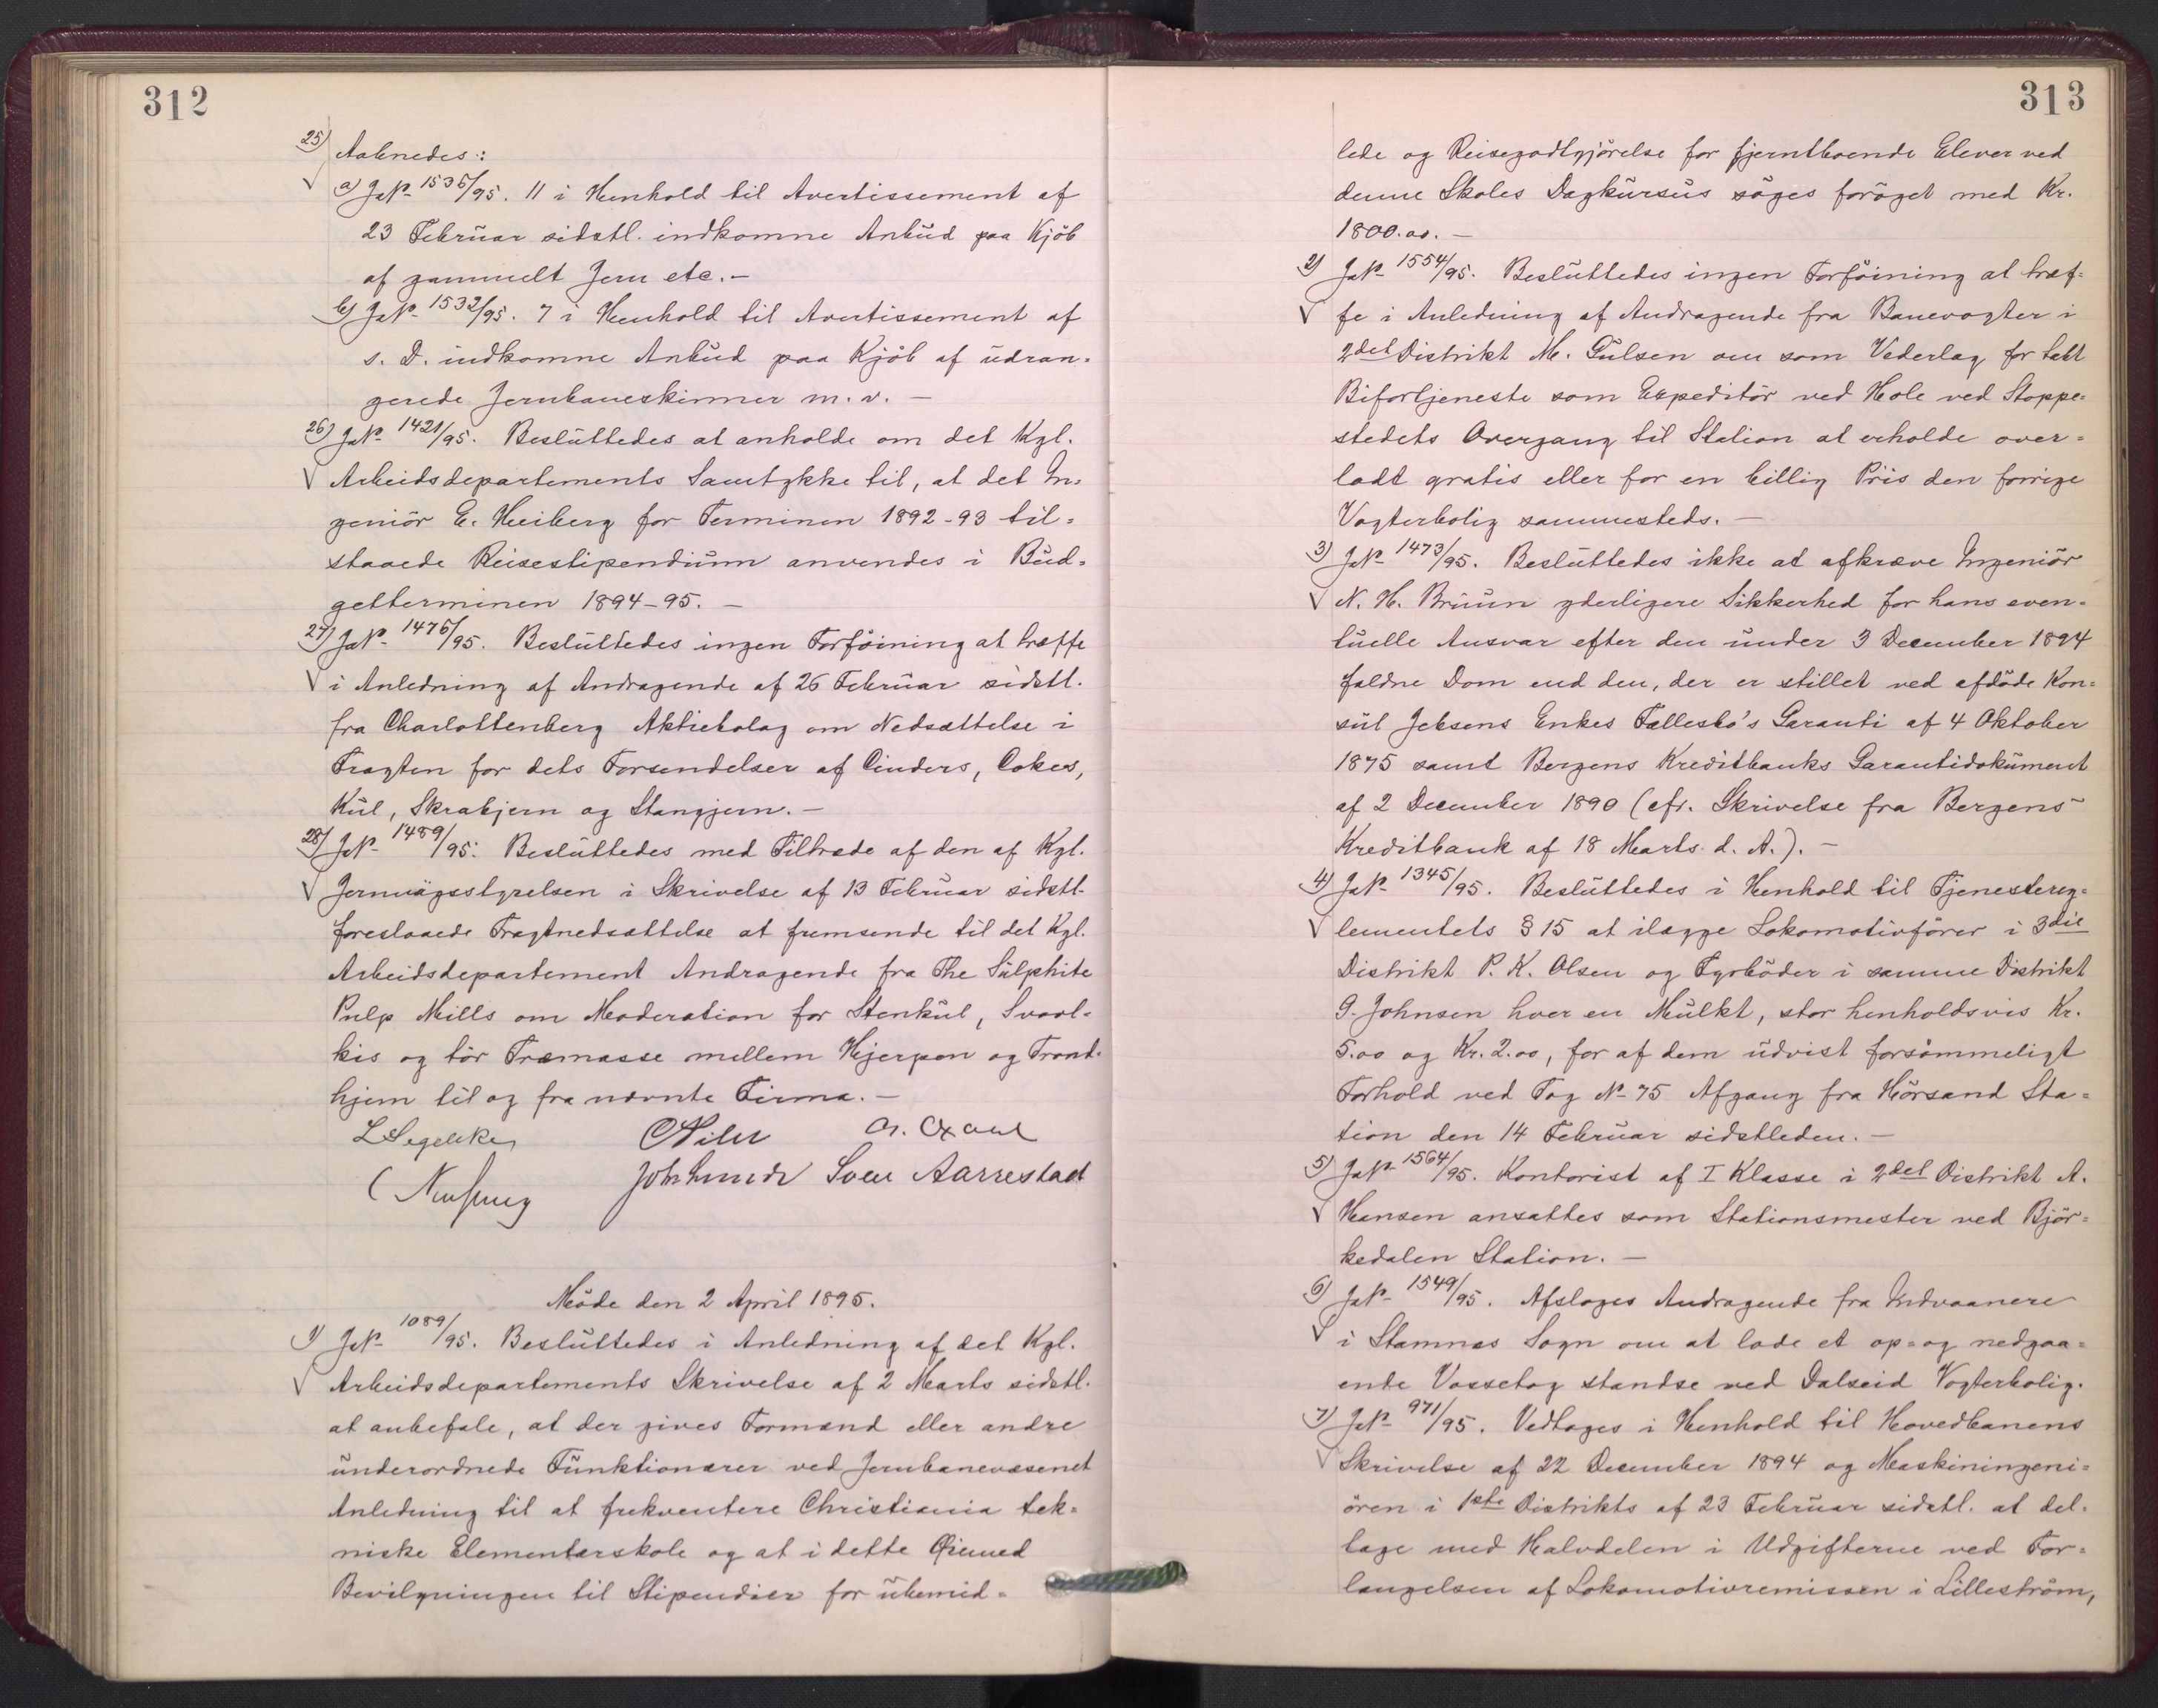 312
25) Aabnedes:
a) JN- 1535/95. 11 i Henhold til Avertissement af
23 Februar sidstl. indkomne Anbud paa Kjöb
af gammelt Jern etc. -
b) JN- 1532/95. 7 i Henhold til Avertissement af
s. D. indkomne Anbud paa Kjöb af udran=
gerede Jernbaneskinner m. v. -
26) JN- 1421/95. Besluttedes at anholde om det Kgl.
Arbeidsdepartements Samtykke til, at det In=
geniör E. Heiberg for Terminen 1892-93 til=
staaede Reisestipendium anvendes i Bud=
getterminen 1894-95. -
27) JN- 1476/95. Besluttedes ingen Forföining at træffe
i Anledning af Andragende af 26 Februar sidstl.
fra Charlottenberg Aktiebolag om Nedsættelse i
Fragten for dets Forsendelser af Cinders, Cokes,
Kul, Skrabjern og Stangjern. -
28) JN- 1489/95. Besluttedes med Tiltræde af den af Kgl.
Jernvägsstyrelsen i Skrivelse af 13 Februar sidstl.
foreslaaede Fragtnedsættelse at fremsende til det Kgl.
Arbeidsdepartement Andragende fra The Sulphite
Pulp Mills om Moderation for Stenkul, Svovl=
kis og tör Træmasse mellem Hjerpen og Trond=
hjem til og fra nævnte Firma. -
L Segelcke
Sven Aarrestad
Möde den 2 April 1895.
1) JN- 1089/95. Besluttedes i Anledning af det Kgl.
Arbeidsdepartements Skrivelse af 2 Marts sidstl.
at anbefale, at der gives Formænd eller andre
underordnede Funktionærer ved Jernbanevæsenet
Anledning til at frekventere Christiania tek=
niske Elementærskole og at i dette Øiemed
Bevilgningen til Stipendier for ubemid=
313
lede og Reisegodtgjörelse for fjerntboende Elever ved
denne Skoles Dagkursus söges foröget med Kr.
1800.00. -
2) JN- 1554/95. Besluttedes ingen Forföining at træf=
fe i Anledning af Andragende fra Banevogter i
2det Distrikt M. Gulsen om som Vederlag for tabt
Bifortjeneste som Expeditör ved Hole ved Stoppe=
stedets Overgang til Station at erholde over=
ladt gratis eller for en billig Pris den forrige
Vogterbolig sammesteds. -
3) JN- 1473/95. Besluttedes ikke at afkræve Ingeniör
N. H. Bruun yderligere Sikkerhed for hans even=
tuelle Ansvar efter den under 3 December 1894
faldne Dom end den, der er stillet ved afdöde Kon=
sul Jebsens Enkes Fællesbo's Garanti af 4 Oktober
1875 samt Bergens Kreditbanks Garantidokument
af 2 December 1890 (cfr. Skrivelse fra Bergens
Kreditbank af 18 Marts d. A.). -
4) JN- 1345/95. Besluttedes i Henhold til Tjenestereg=
lementets § 15 at ilægge Lokomotivförer i 3die
Distrikt P. K. Olsen og Fyrböder i samme Distrikt
G. Johnsen hver en Mulkt, stor henholdsvis Kr.
5.00 og Kr. 2.00, for af dem udvist forsömmeligt
Forhold ved Tog N- 75 Afgang fra Hörsand Sta=
tion den 14 Februar sidstleden. -
5) JN- 1564/95. Kontorist af I Klasse i 2det Distrikt A.
Hansen ansattes som Stationsmester ved Björ=
kedalen Station. -
6) JN- 1549/95. Afsloges Andragende fra Indvaanere
i Stamnes Sogn om at lade et op= og nedgaa=
ende Vossetog standse ved Dalseid Vogterbolig.
7) JN- 971/95. Vedtoges i Henhold til Hovedbanens
Skrivelse af 22 December 1894 og Maskiningeni=
ören i 1ste Distrikts af 23 Februar sidstl. at del=
tage med Halvdelen i Udgifterne ved For=
længelsen af Lokomotivremissen i Lilleström,